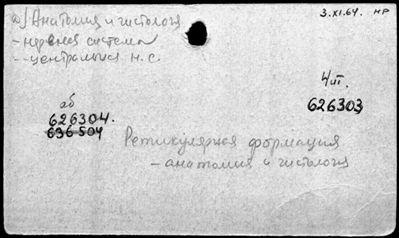 а) Анатомия и гистология
3.XI.64. НР
- нервная система
- центральная н.с.
4 III.
626303
аб
626304.
636504
Ретикулярная формация
- анатомия и гистология